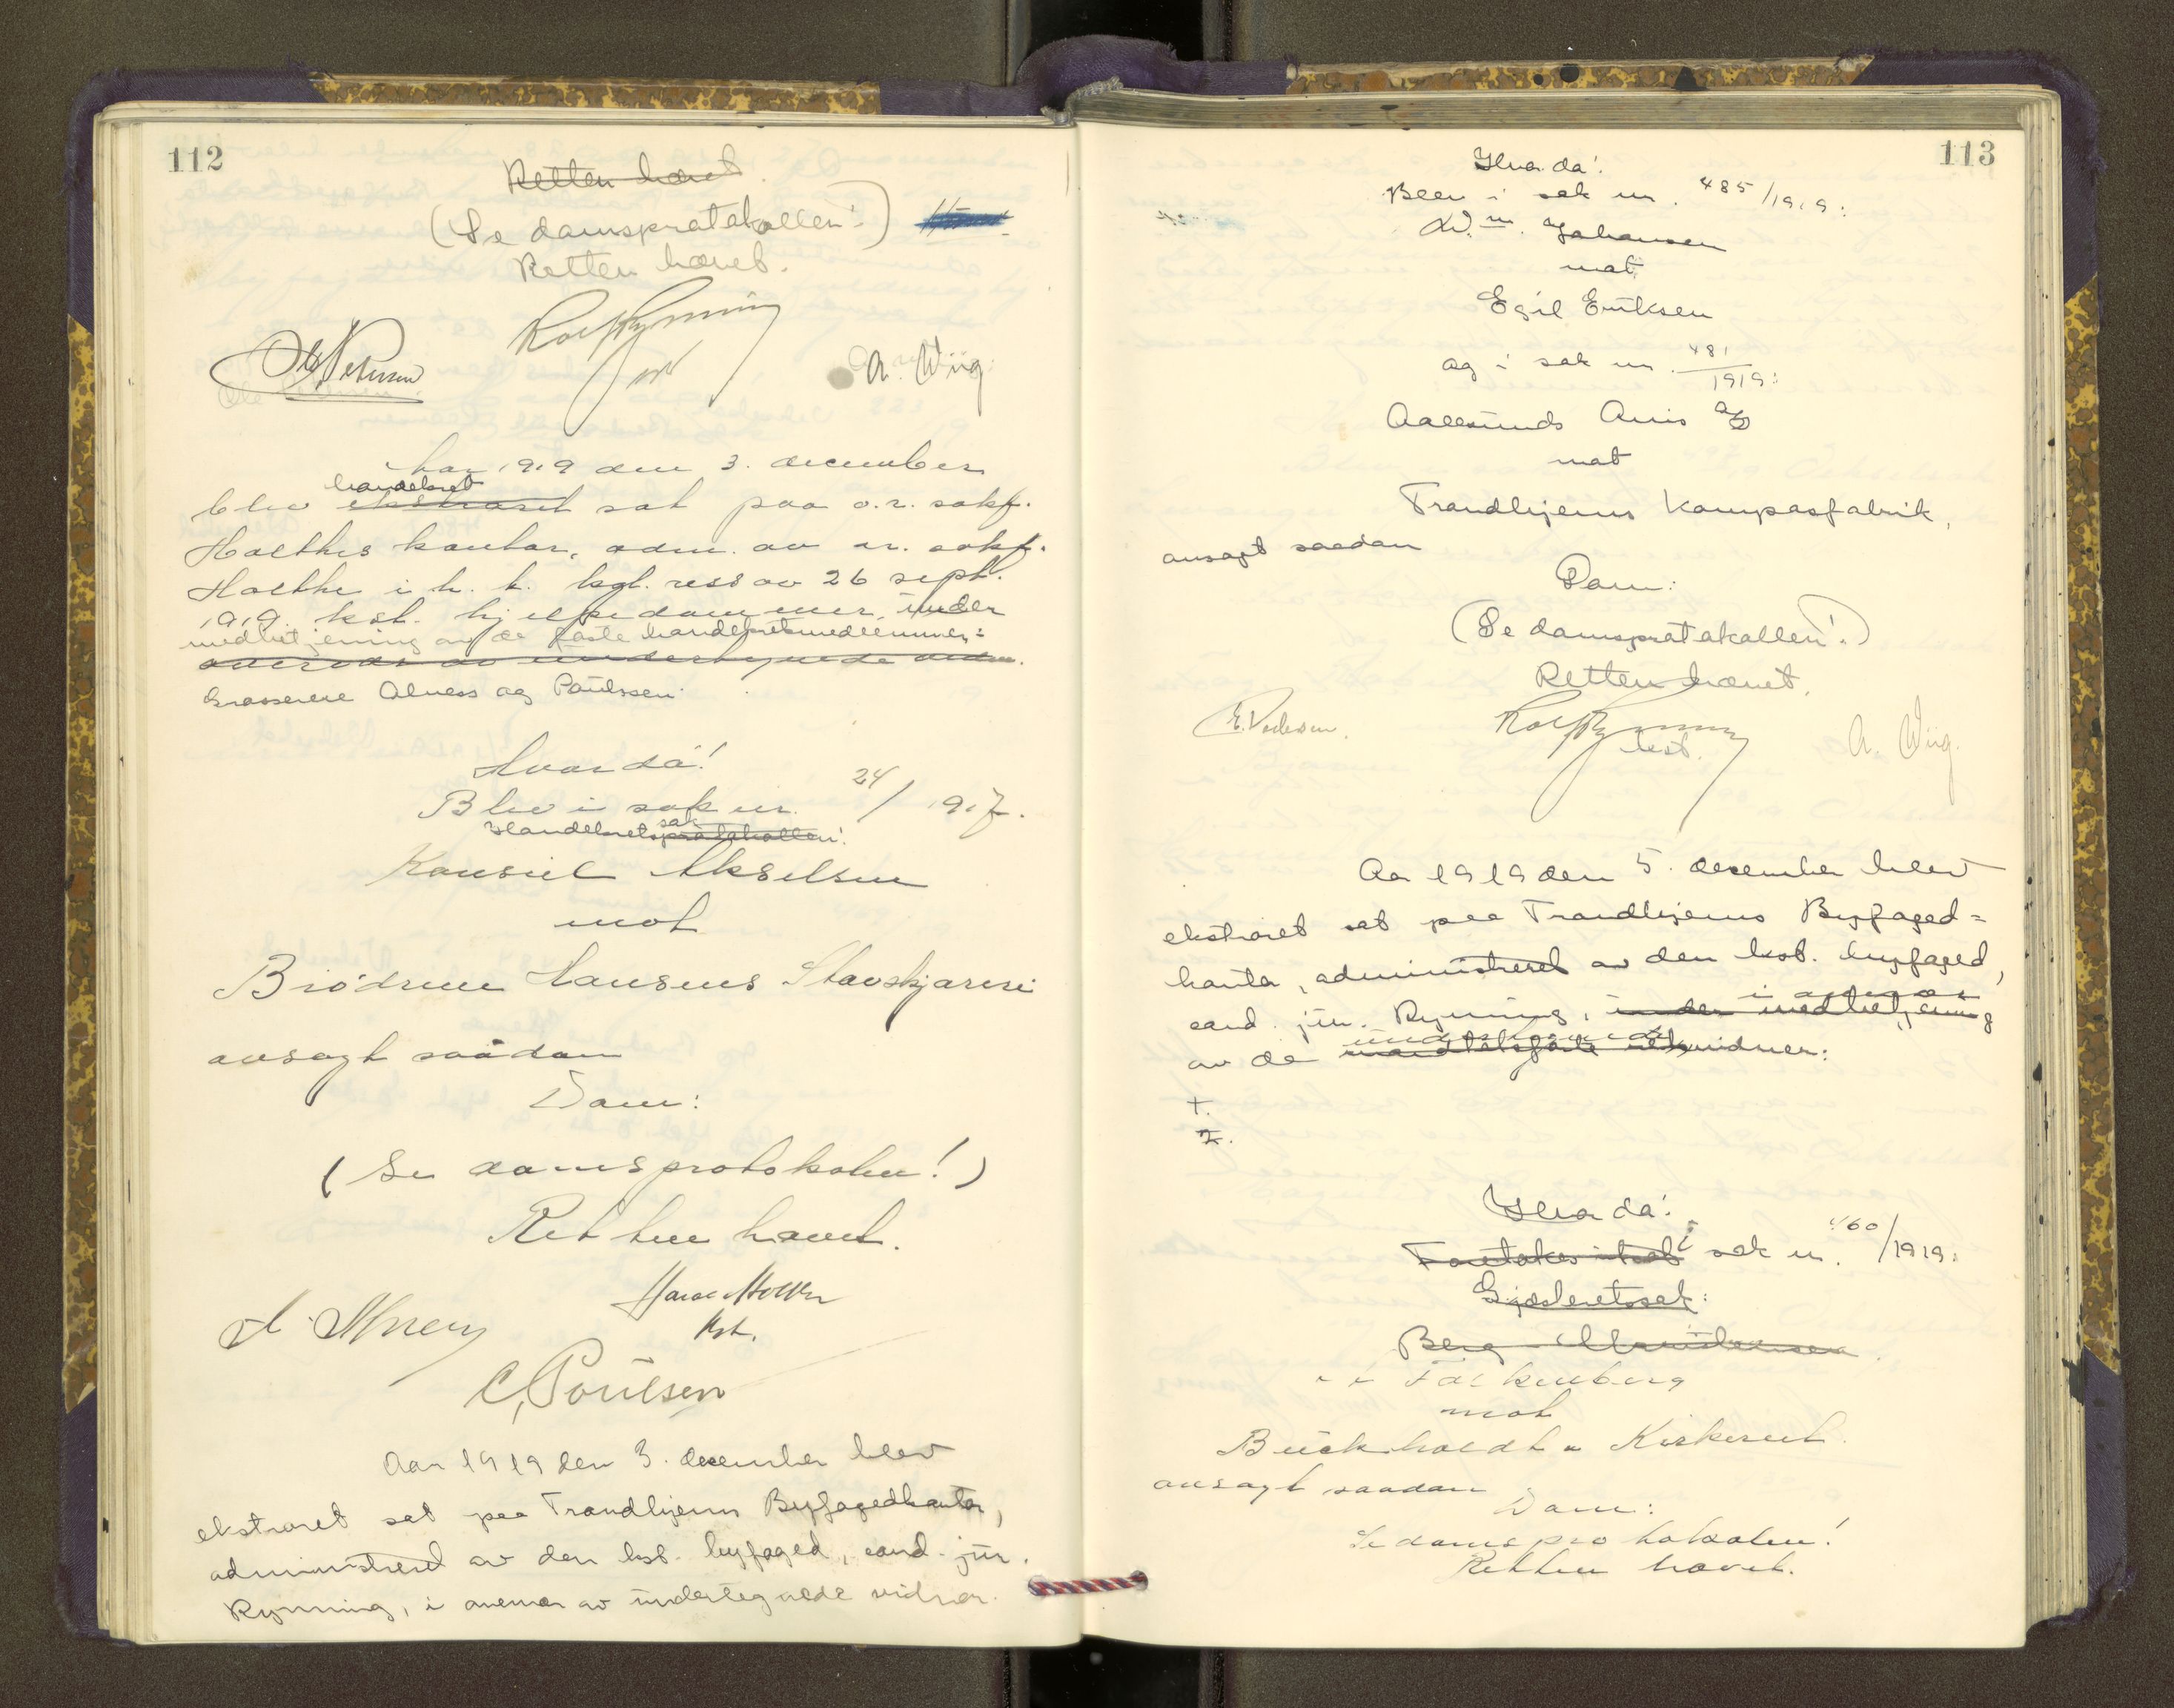 112
Retten hævet.
(Se domsprotokollen!)
Retten hævet.
Rolf Rynning
Ole Petersen
A. Wiig
Aar 1919 den 3. december
handelsret
blev ekstraret sat paa o.r. sakf.
Holthes kontor, adm. av o.r. sakf.
Holthe i h. t. kgl. res av 26 sept.
1919 kst. hjelpedommer under
medbetjening av de faste handelsretsmedlemmer:
overvær av undertegnede vidner.
Grosserere Alness og Poulssen
Hvorda!
Blev i sak nr. 24/1917.
Handelsretssak protokollen!
Konsul Akselsen
mot
Brødrene Hansens Skovskjæreri
avsagt saadan
Dom:
(Se domsprotokolen!)
Retten hævet.
Kst.
C. Poulsen
Aar 1919 den 3. december blev
ekstraret sat paa Trondhjems Byfogedkontor,
administreret av den kst. byfoged, cand. jur.
Rynning, i overvær av undertegnede vidner.
113
Hvorda!
Blev i sak nr. 485/1919:
Wm. Johansen
mot
Egil Eriksen
og i sak nr. 481/1919:
Aalesunds Avis A/S
mot
Trondhjems Kompasfabrik,
avsagt saadan
Dom:
(Se domsprotokollen!)
Retten hævet.
E. Pedersen.
Rolf Rynning
kst.
A. Wiig.
Aar 1919 den 5. december blev
ekstraret sat paa Trondhjems Byfoged=
kontor, administreret av den kst. byfoged,
i overvær
cand. jur. Rynning, under medbetjening
undertegnede
av de mandtalsførte retsvidner:
1.
2.
Hvorda!
Foretokes i sak nr. 460/1919:
Gjesteretssak:
Berg
Falkenberg
mot
Buckholdt & Kirkerud.
avsagt saadan
Dom:
Se domsprotokolen!
Retten hævet.